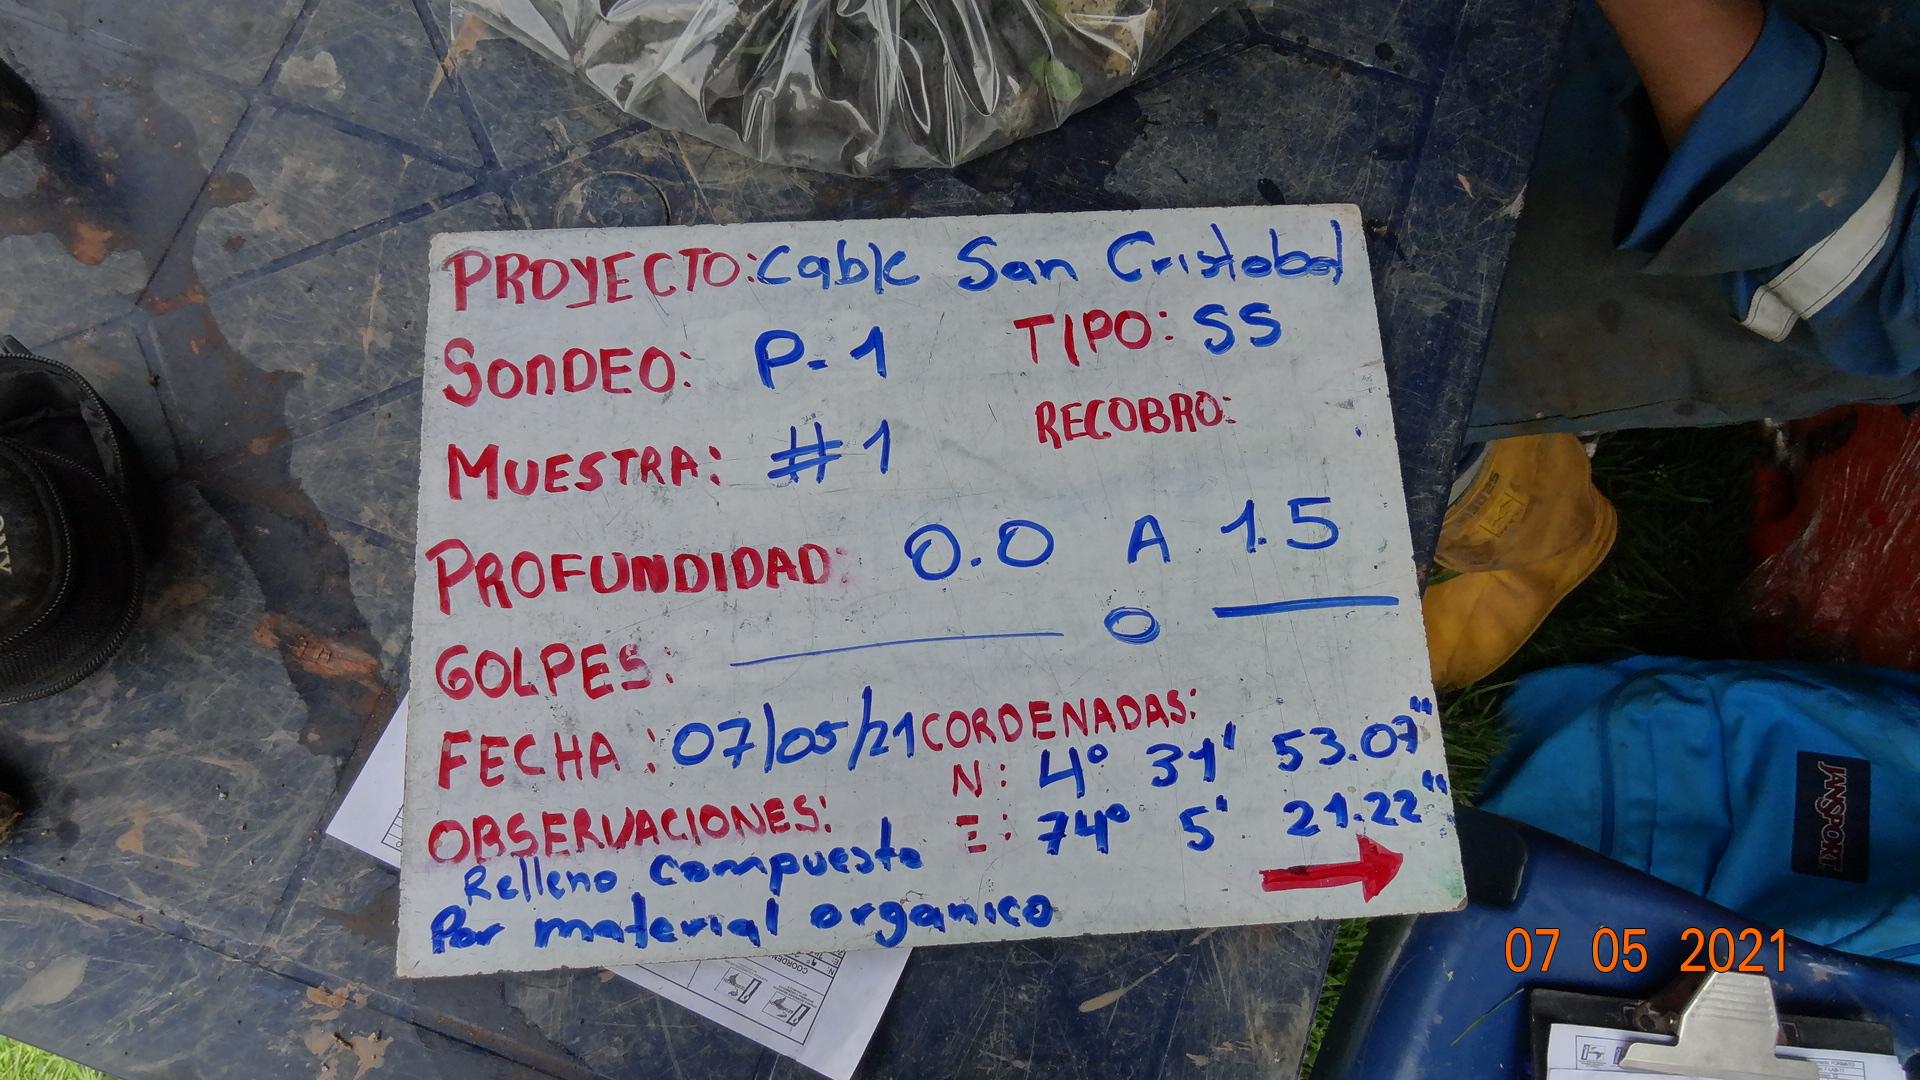 PROYECTO: Cable San Cristobal
SONDEO: P-1 TIPO: SS
MUESTRA: #1 RECOBRO:
PROFUNDIDAD: 0.0 A 1.5
GOLPES: 0
FECHA: 07/05/21 CORDENADAS:
N: 4° 31' 53.07"
E: 74° 5' 21.22"
OBSERVACIONES:
Relleno compuesto
Por material organico
JANSPORT
07 05 2021